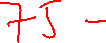 75 -